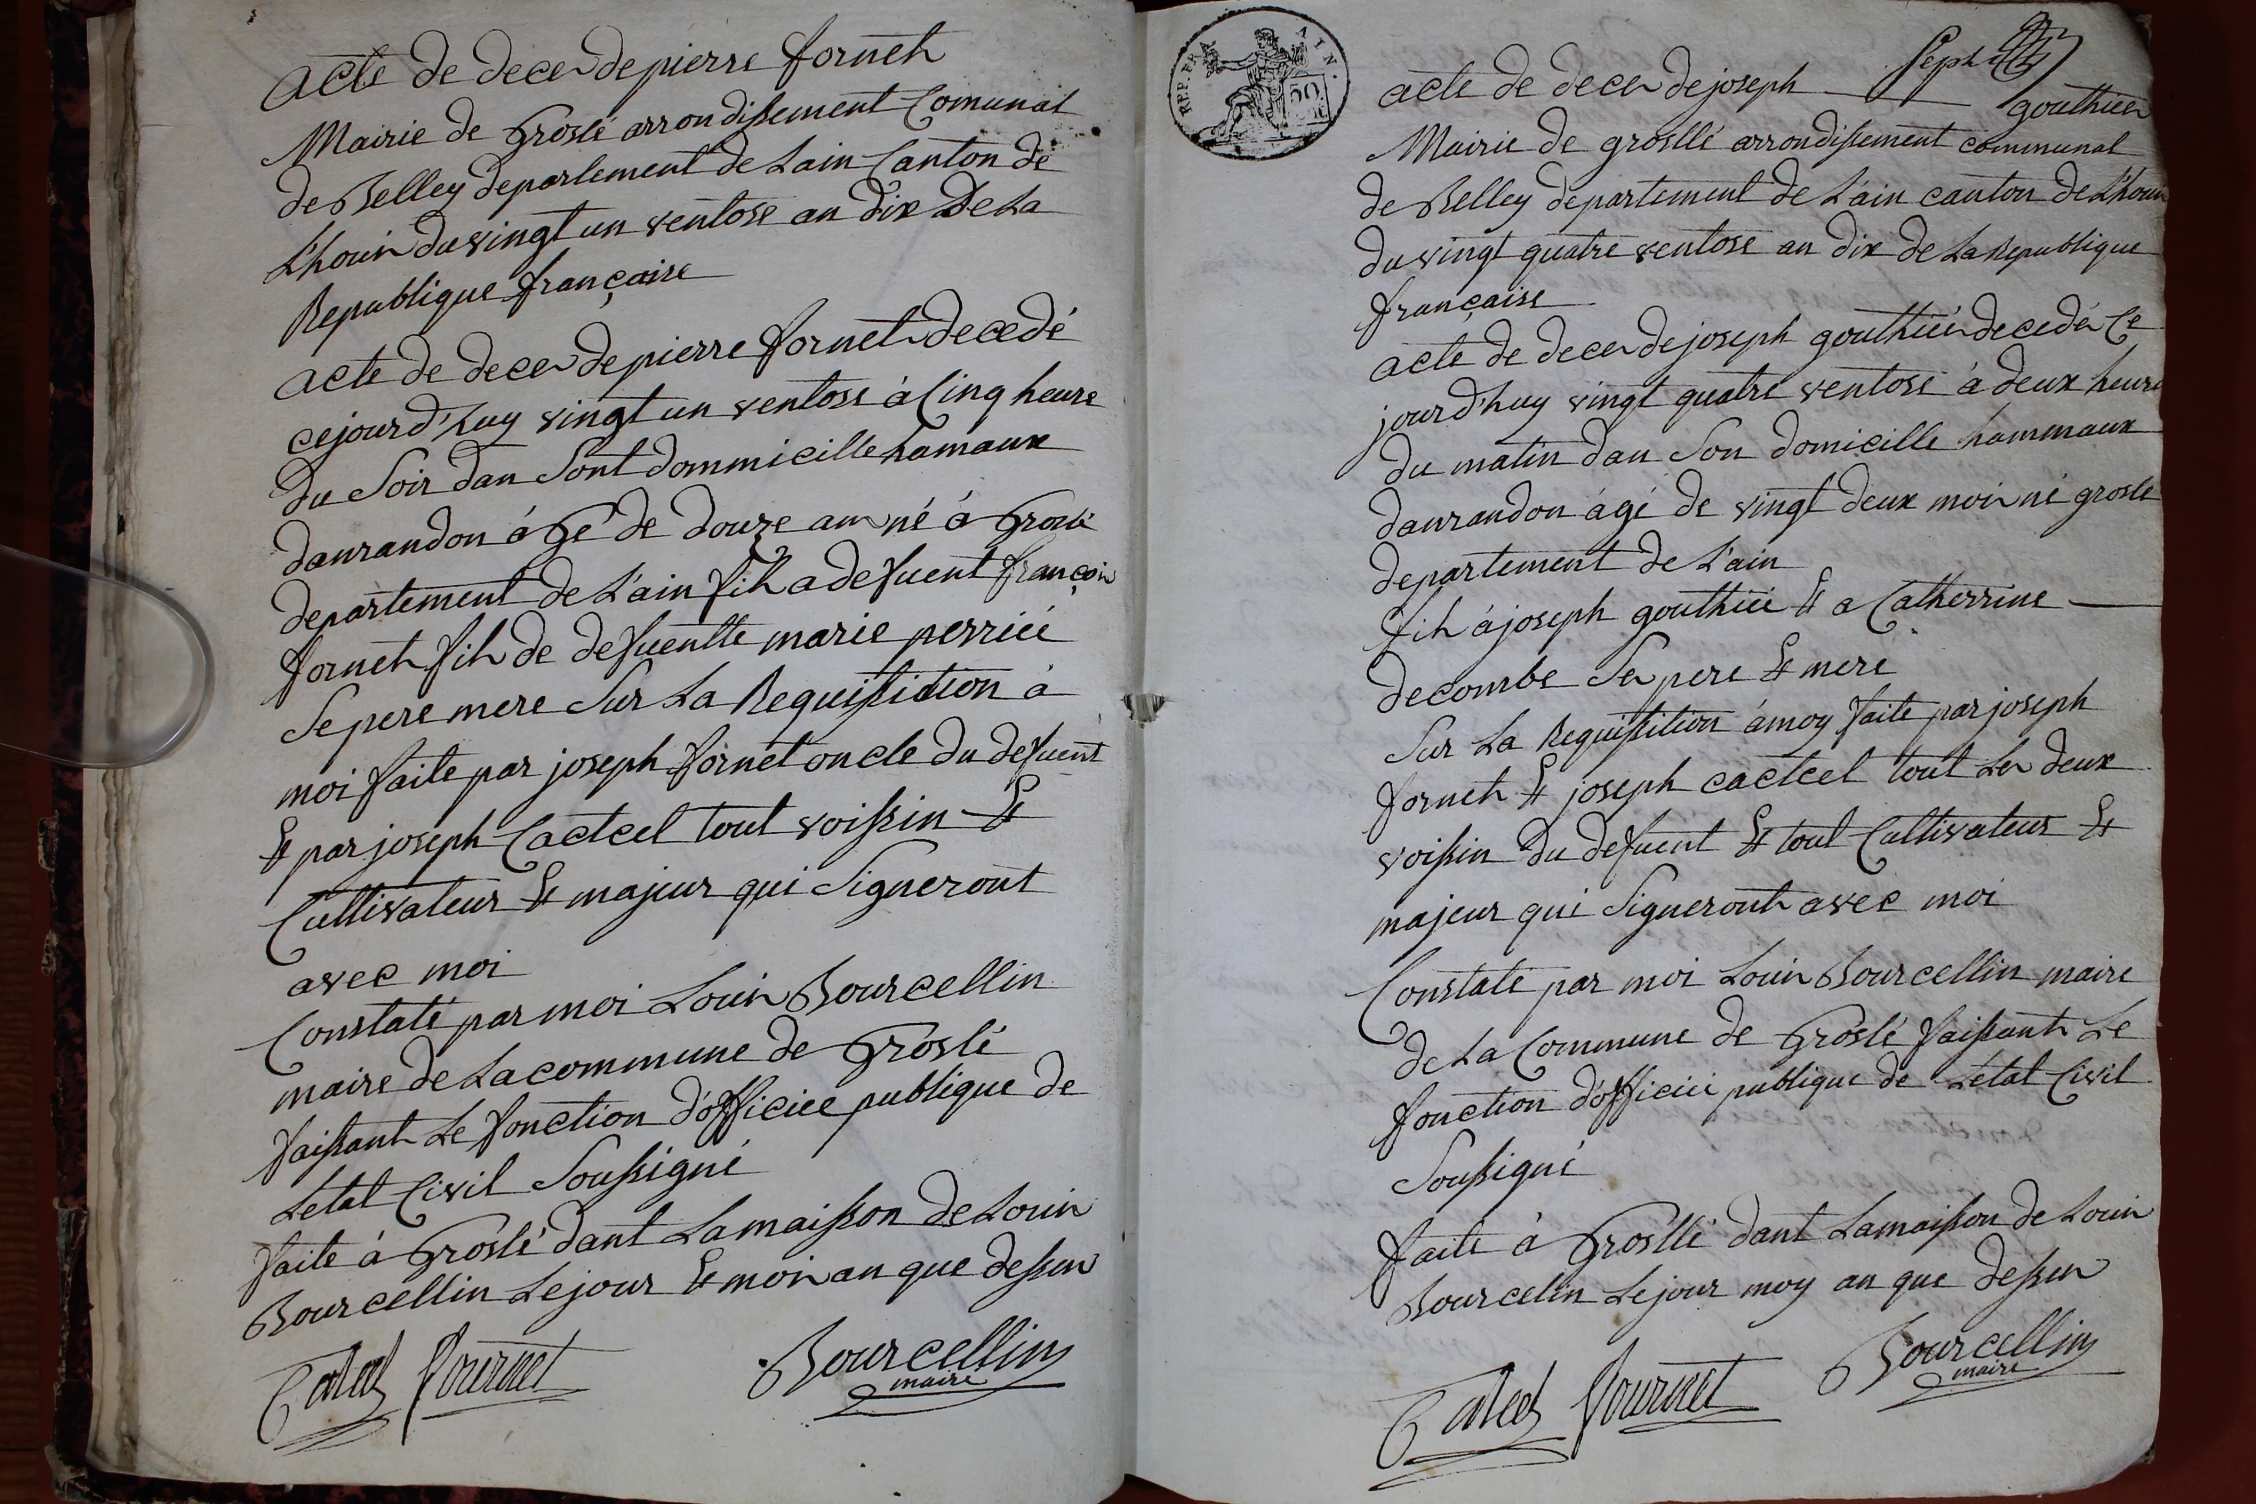 acte de deces de pierre fornet
Mairie de Groslé arrondissement Comunal
de Belley departement de Lain Canton de
Lhouis du vingt un ventose an dix De La
Republique française
acte de deces de pierre fornet decedé
cejourd'huy vingt un ventose à Cinq heure
du Soir dan Sont dommicille hamaux
danrandon âGé de douze ans né à Groslé
departement de L'ain fils a defuent françois
fornet fils de defuentte marie perrier
Se pere mere Sur La Requisition à
moi faite par joseph fornet oncle du defuent
et par joseph Cacteel tout voissin et
Cultivateur et majeur qui Signeront
avec moi
Constaté par moi Louis Bourcellin
maire de La commune de Groslé
faissant Le fonction d'officiee publique de
Letat Civil Soussigné
faite à Groslé dant La maisson de Louis
Bourcellin Le jour et mois an que dessus
fournet Bourcellin
maire
REP. FRA AIN.
50
Sept
acte de deces de joseph
gouthier
Mairie de grosllé arrondissement communal
de Belley departement de L'ain canton de Lhouis
du vingt quatre ventose an dix de La Republique
française
acte de deces de joseph gouthier decedé Ce
jourd'huy vingt quatre ventose à deux heure
du matin dan Son domicille hammaux
danrandon âgé de vingt deux mois né grosle
departement de L'ain
fils à joseph gouthier et a Catherrine
decombe Ses pere et mere
Sur La Requisition à moy faite par joseph
fornet et joseph cacteel tout Les deux
voissin du defuent et tout Cultivateur et
majeur qui Signeront avec moi
Constaté par moi Louis Bourcellin maire
de La Commune de Groslé faissant Le
fonction d'officier publique de L'état Civil
Soussigné
faite à Grosllé dant La maisson de Louis
Bourcelin Le jour moy an que dessus
fournet Bourcellin
maire